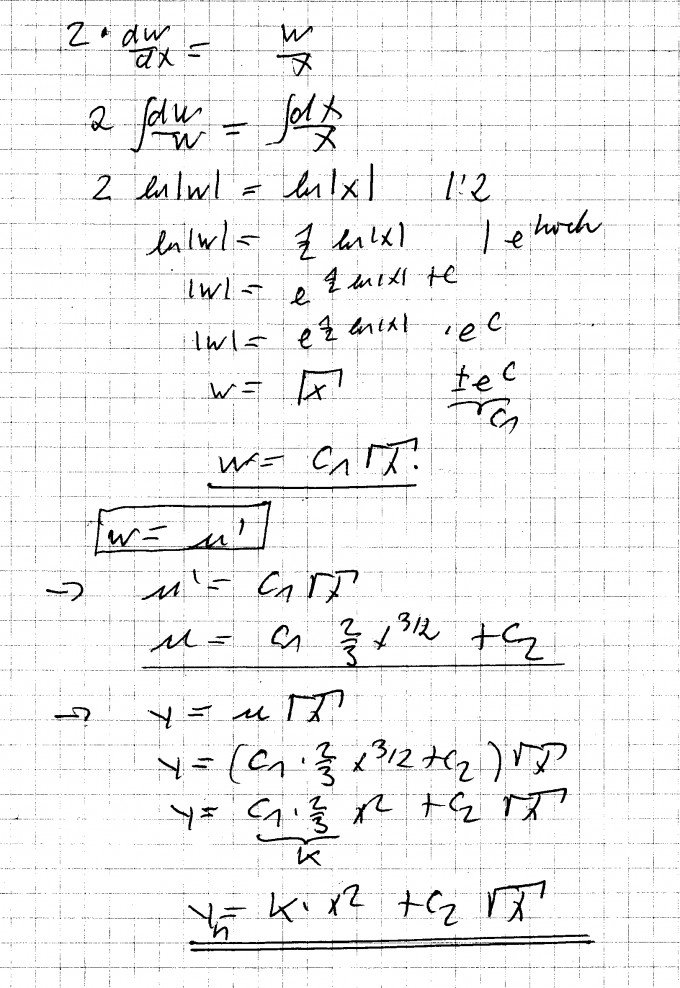 2 · dw/dx = w/x
2 ∫dw/w = ∫dx/x
2 ln|w| = ln|x| |:2
ln|w| = 1/2 ln|x| | e hoch
|w| = e^(1/2 ln|x| + C)
|w| = e^(1/2 ln|x|) · e^C
w = √x ±e^C
C₁
w = C₁ √x.
w = u'
→ u' = C₁ √x
u = C₁ 2/3 x^(3/2) + C₂
→ y = u √x
y = (C₁ · 2/3 x^(3/2) + C₂) √x
y = C₁ · 2/3 x² + C₂ √x
K
yₕ = K · x² + C₂ √x